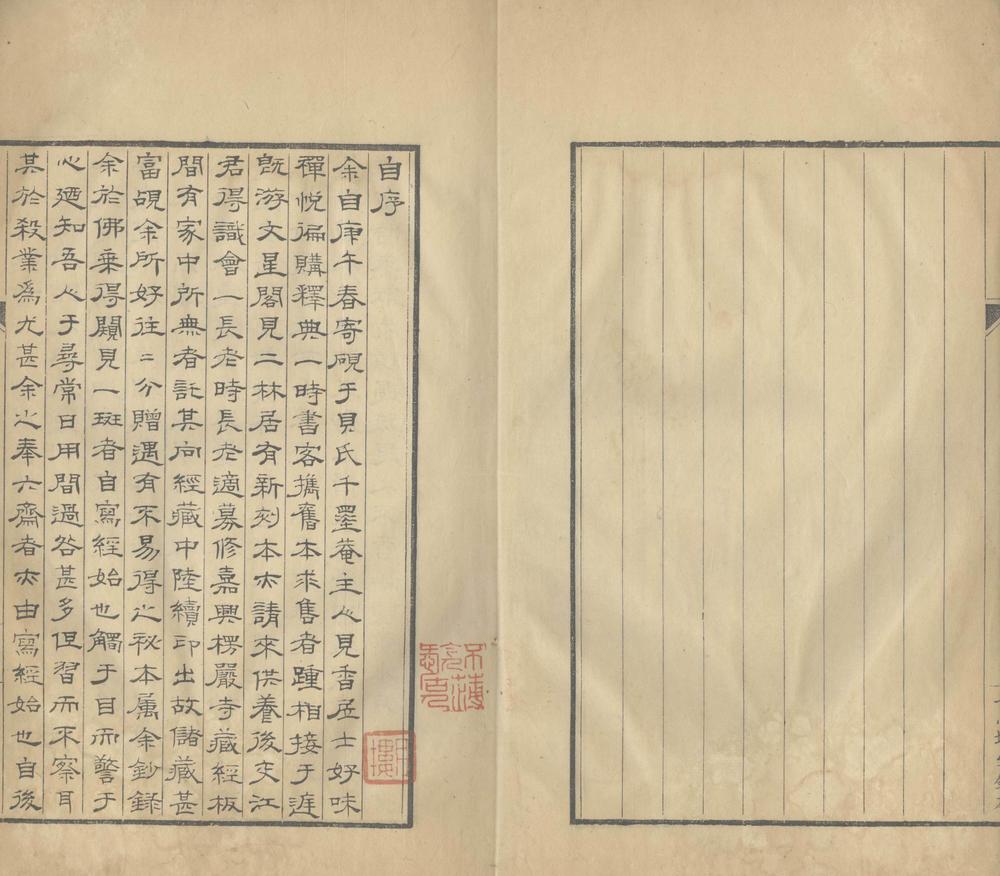 自序
余自庚午春寄硯于貝氏千墨菴主心見香居士好味
禪悅徧購釋典一時書客攜舊本求售者踵相接于遅
旣游文星閣見二林居有新刻本亦請來供養後交江
君得識會一長老時長老適募修嘉興楞嚴寺藏經板
間有家中所無者託其向經藏中陸續印出故儲藏甚
富覘余所好往〻分贈遇有不易得之秘本屬余鈔錄
余於佛乘得闚見一斑者自寫經始也觸于目而警于
心廼知吾心于尋常日用間過咎甚多但習而不察耳
其於殺業爲尤甚余之奉六齋者亦由寫經始也自後